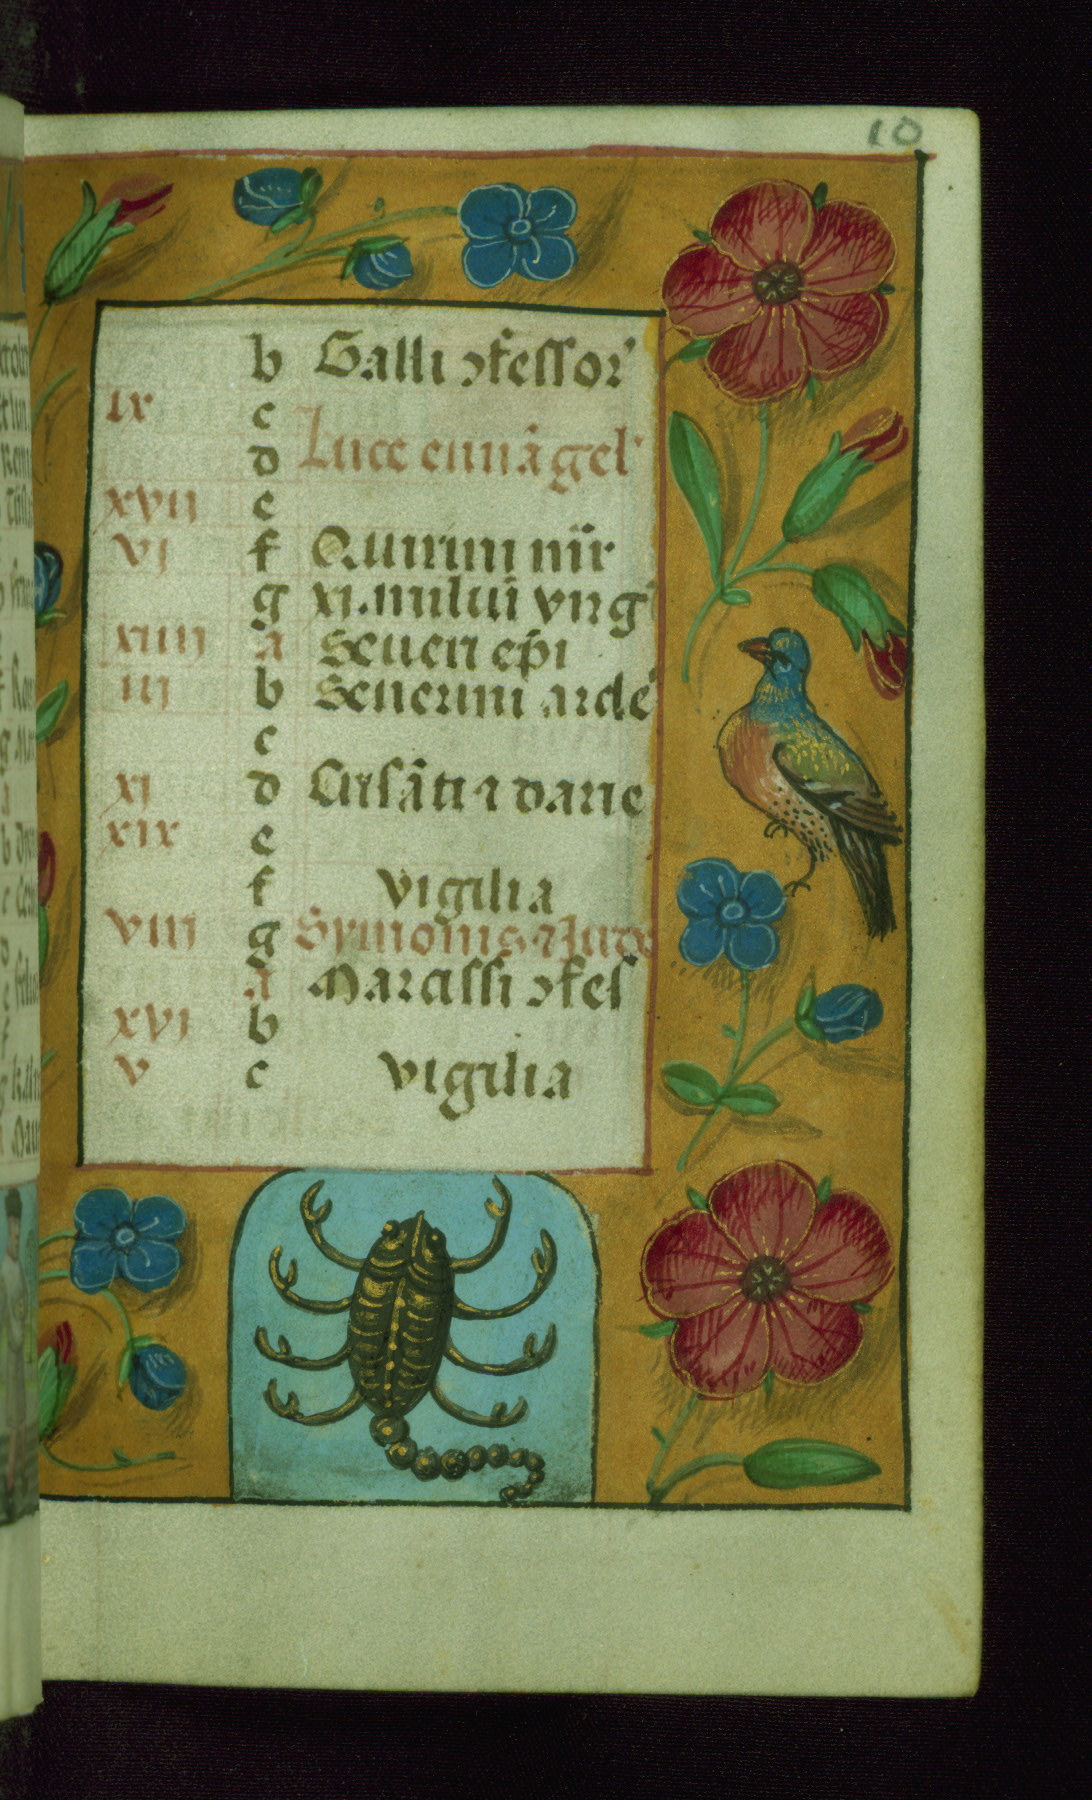 10
b Galli ɔfessor
ix c
d Luce euuāgel'
xvii e
vj f Quirini mir
g xi. miliū virg'
xiiii a Seueri epi
iij b Seuerini arcle
c
xj d Crisāti ⁊ darie
xix e
f vigilia
viii g Symonis ⁊ Jude
a Narcissi ɔfes
xvj b
v c vigilia